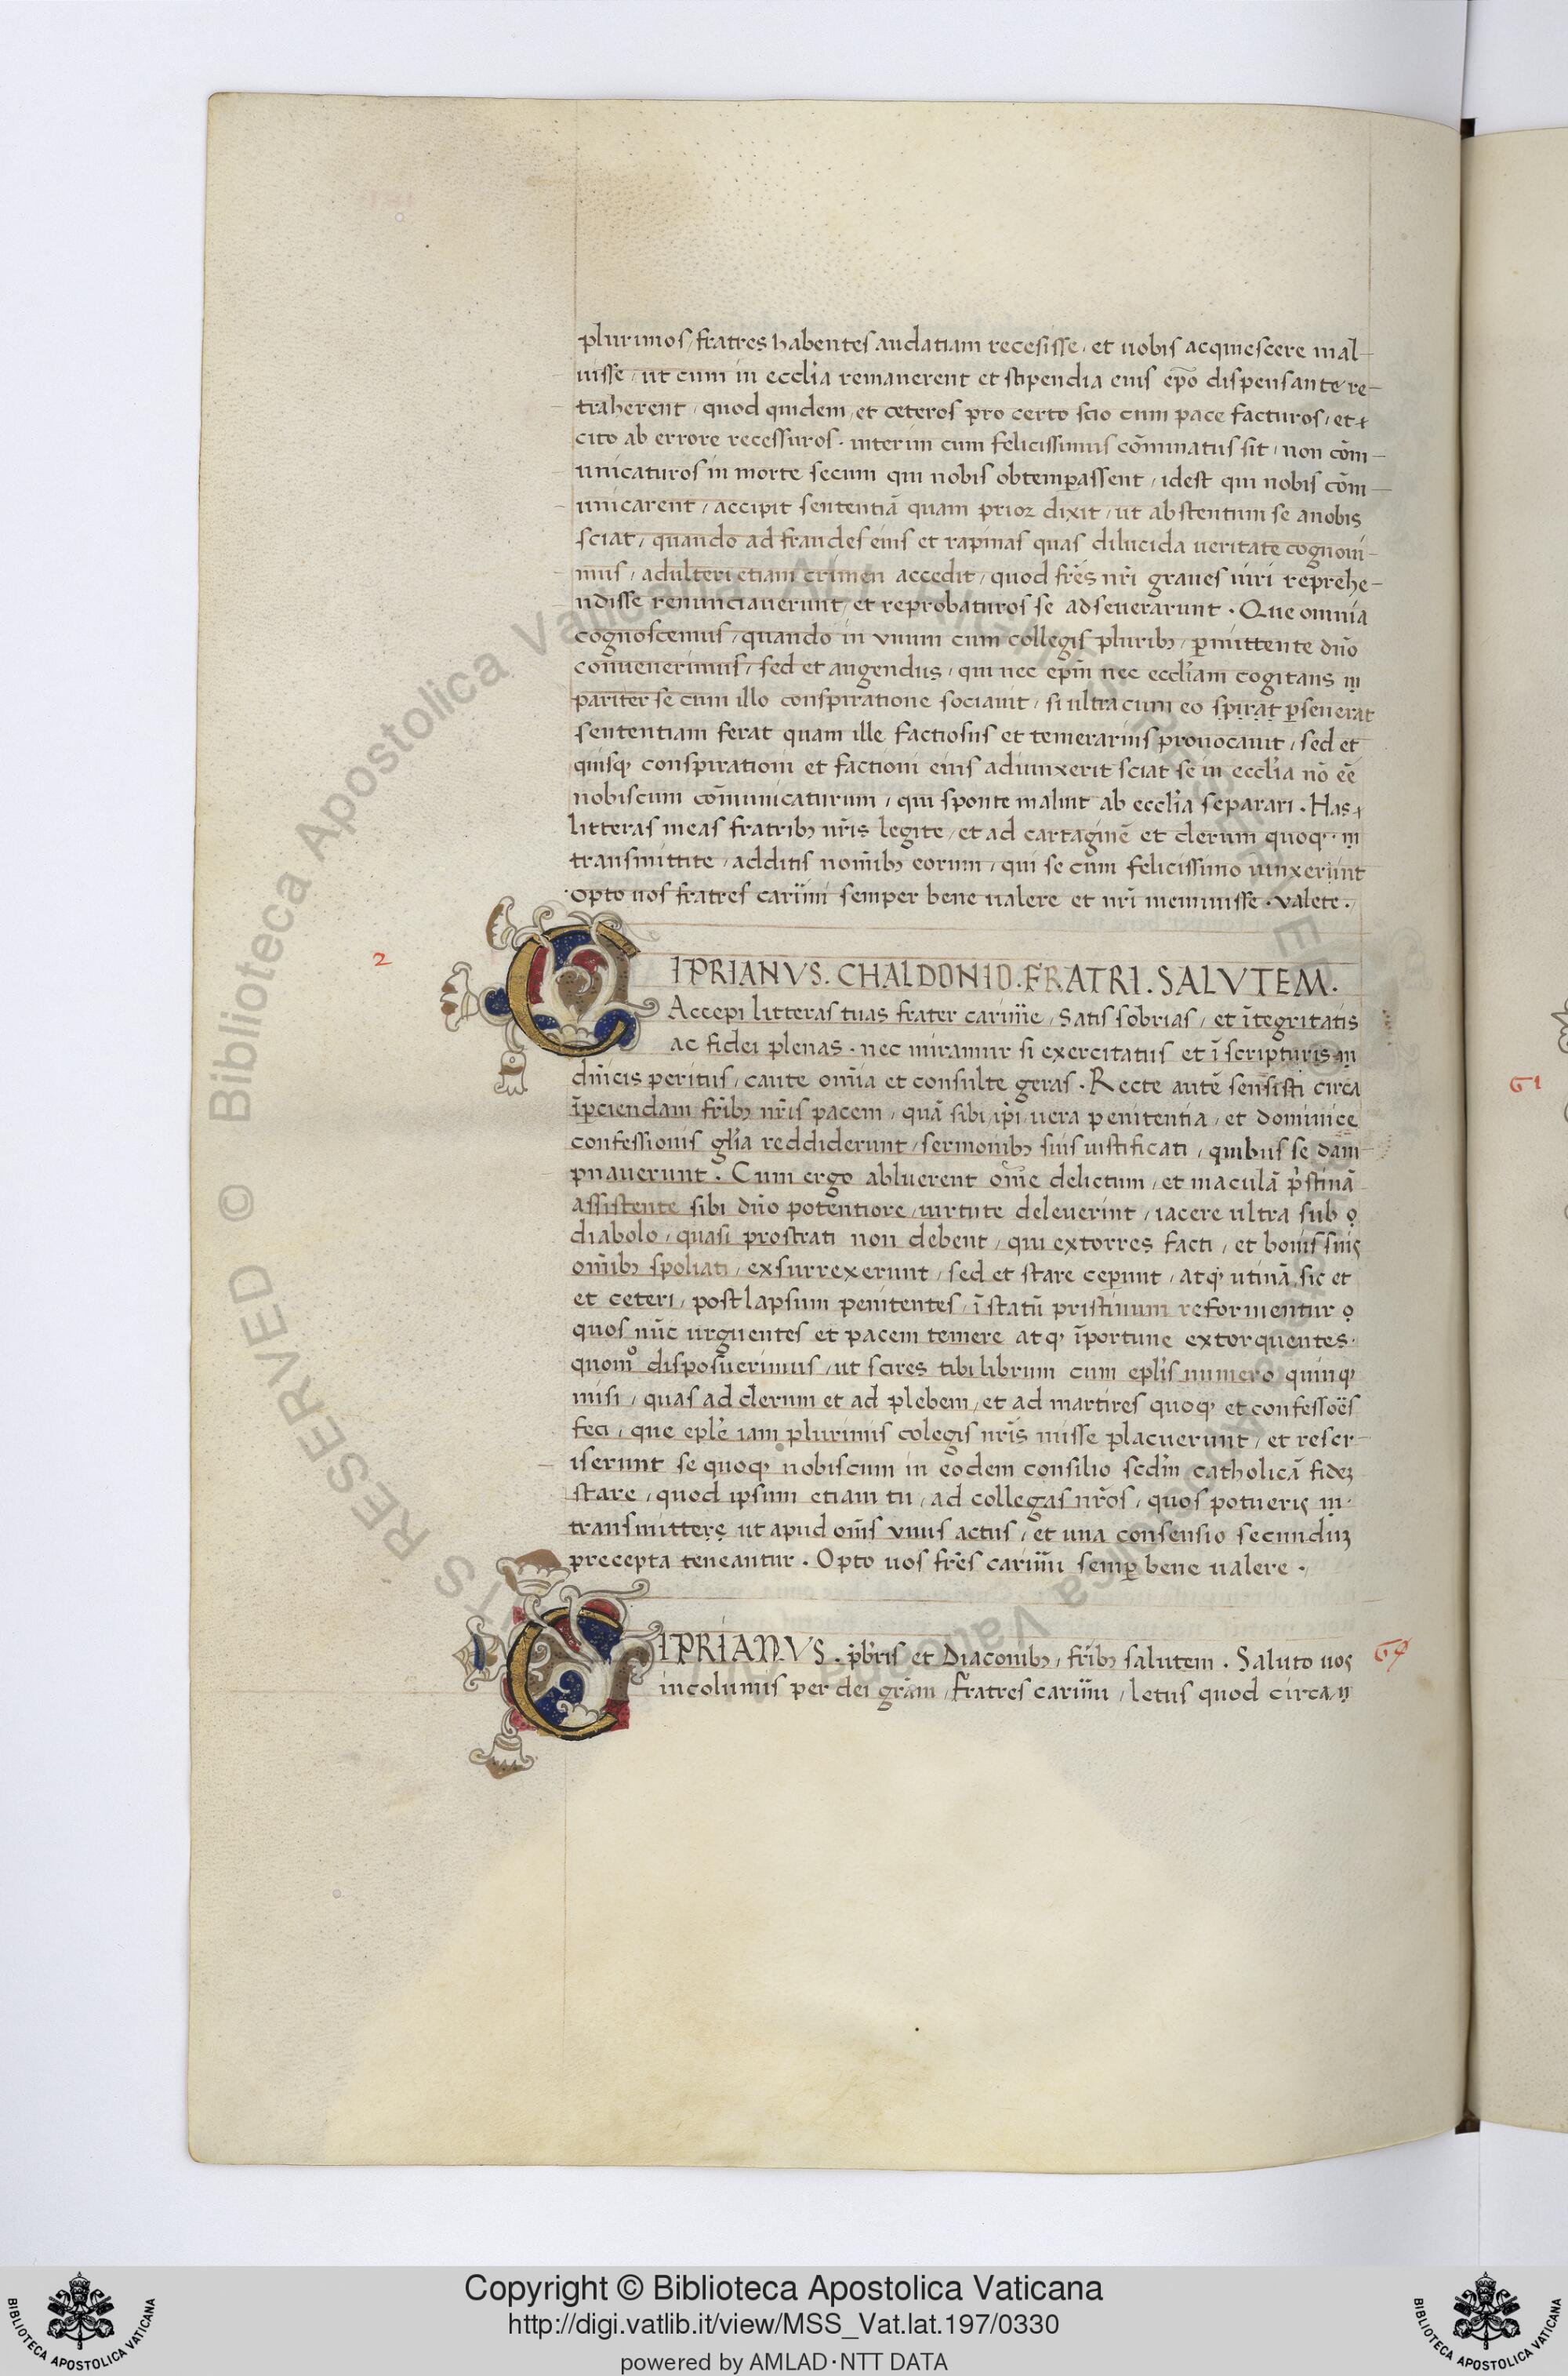 plurimos, fratres habentes audatiam recesisse, et uobis acquiescere mal-
uisse, ut cum in ecclia remanerent et stipendia eius ep̄o dispensante, re-
traherent, quod quidem, et ceteros pro certo scio cum pace facturos, et
cito ab errore recessuros. interim cum felicissimus cōminatus sit, non cōm-
unicaturos in morte secum qui nobis obtemꝑassent, idest qui nobis cōm-
unicarent, accipit sententiā quam prior dixit, ut abstentum se anobis
sciat, quando ad fraudes eius et rapinas quas dilucida ueritate cognoui-
mus, adulteri etiam crimen accedit, quod fr̄es nr̄i graues uiri reprehe-
ndisse renunciauerunt, et reprobaturos se adseuerarunt. Que omnia
cognoscemus, quando in vnum cum collegis pluribꝫ, ꝑmittente dn̄o
conuenerimus, sed et augendus, qui nec epm̄ nec eccliam cogitans
pariter se cum illo conspiratione sociauit, si ultra cum eo spirat ꝑseuerat
sententiam ferat quam ille factiosus et temerarius prouocauit, sed et
quisqꝫ conspirationi et factioni eius adiunxerit sciat se in ecclia nō ēe
nobiscum cōmunicaturum, qui sponte maluit ab ecclia separari. Has
litteras meas fratribꝫ nr̄is legite, et ad cartaginē et clerum quoqꝫ.
transmittite, additis nomībꝫ eorum, qui se cum felicissimo uinxerunt
Opto uos fratres carīmi semper bene ualere et nr̄i meminisse. Valete.
2
CIPRIANVS. CHALDONIO. FRATRI. SALVTEM.
Accepi litteras tuas frater carīme, Satis sobrias, et ītegritatis
ac fidei plenas. nec miramur si exercitatus et ī scripturis
dn̄icis peritus, caute omīa et consulte geras. Recte autē sensisti circa
īꝑciendam fr̄ibꝫ nr̄is pacem, quā sibi ip̄i uera penitentia, et dominice
confessionis gl̄ia reddiderunt, sermonibꝫ suis iustificati, quibus se dam
pnauerunt. Cum ergo abluerent om̄e delictum, et maculā p̄stinā
assistente sibi dn̄o potentiore, uirtute deleuerint, iacere ultra sub
diabolo, quasi prostrati non debent, qui extorres facti, et bonis suis
omībꝫ spoliati, exsurrexerunt, sed et stare ceperunt, atqꝫ utinā, sic et
et ceteri, post lapsum penitentes, ī statū pristinum reformentur
quos nūc urguentes et pacem temere atqꝫ īportune extorquentes.
quomo disposuerimus, ut scires tibi librum cum epl̄is numero quinqꝫ
misi, quas ad clerum et ad plebem, et ad martires quoqꝫ et confessoēs
feci, que epl̄e iam plurimis colegis nr̄is misse placuerunt, et rescr-
iserunt se quoqꝫ nobiscum in eodem consilio scdm̄ catholicā fidez
stare, quod ipsum etiam tu, ad collegas nr̄os, quos potueris
transmittere ut apud om̄s vnus actus, et una consensio secunduz
precepta teneantur. Opto uos fr̄es carīmi semꝑ bene ualere.
CIPRIANVS. p̄bris et Diaconibꝫ, fr̄ibꝫ salutem. Saluto uos
incolumis per dei gr̄am, fratres carīmi, letus quod circa
61
Copyright © Biblioteca Apostolica Vaticana
http://digi.vatlib.it/view/MSS_Vat.lat.197/0330
powered by AMLAD·NTT DATA
BIBLIOTECA APOSTOLICA VATICANA
BIBLIOTECA APOSTOLICA VATICANA